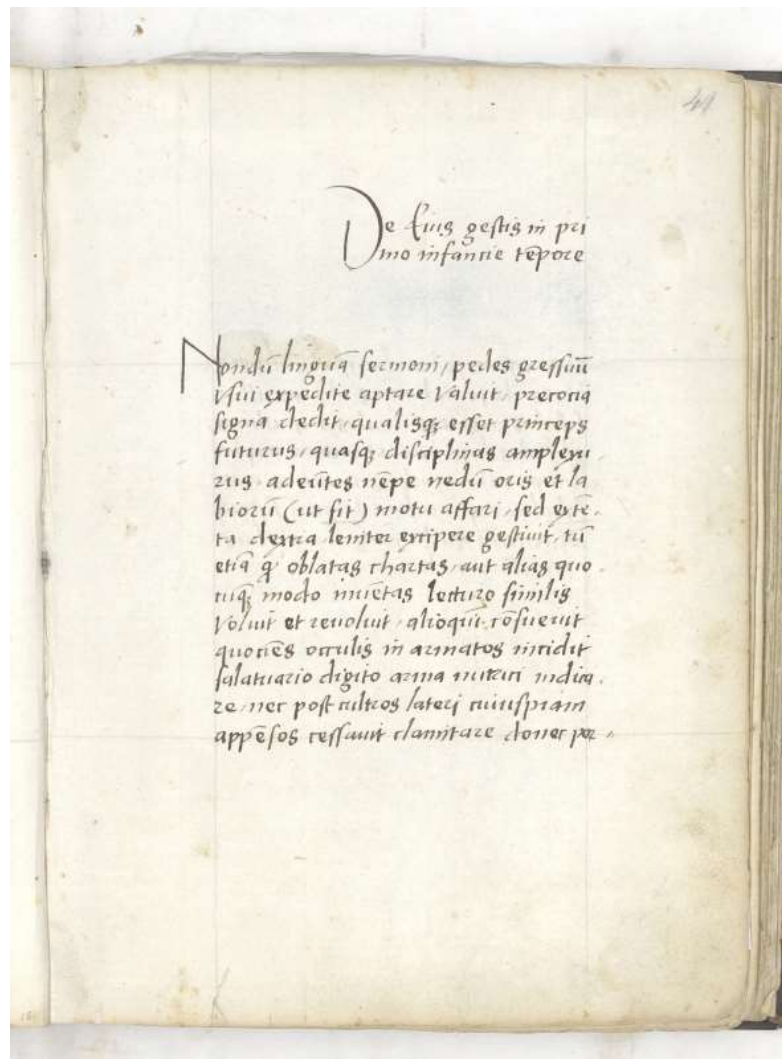 41
De Eius gestis in pri
mo infancie tēpore
Nondū linguā sermoni / pedes gressuū
Usui expedite aptare Valuit / precocia
signa dedit / qualisq; esset princeps
futurus / quasq; disciplinas amplexu
rus / adeūtes nēpe nedū oris et la
biorū (ut fit) motu affari / sed extē-
ta dextra leniter excipere gestiuit / tū
etiā q oblatas chartas / aut alias quo
cuq; modo inuētas lecturo similis
Voluit et reuoluit / alioqui cōsueuit
quociēs occulis in armatos incidit
salatuario digito arma nutrici indica-
re / nec post cultros lateri cuiuspiam
appēsos cessauit clamitare donec per-